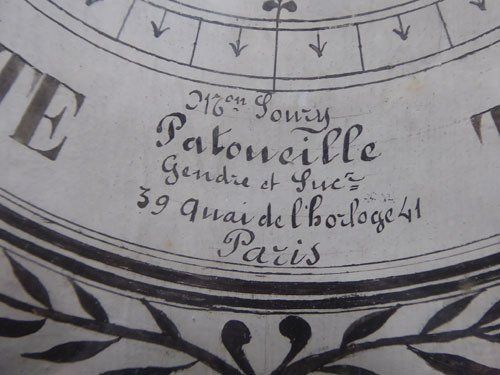 Mon Soury
Patoueille
Gendre et Sucr
39 Quai de l'horloge 41
Paris
TE
T